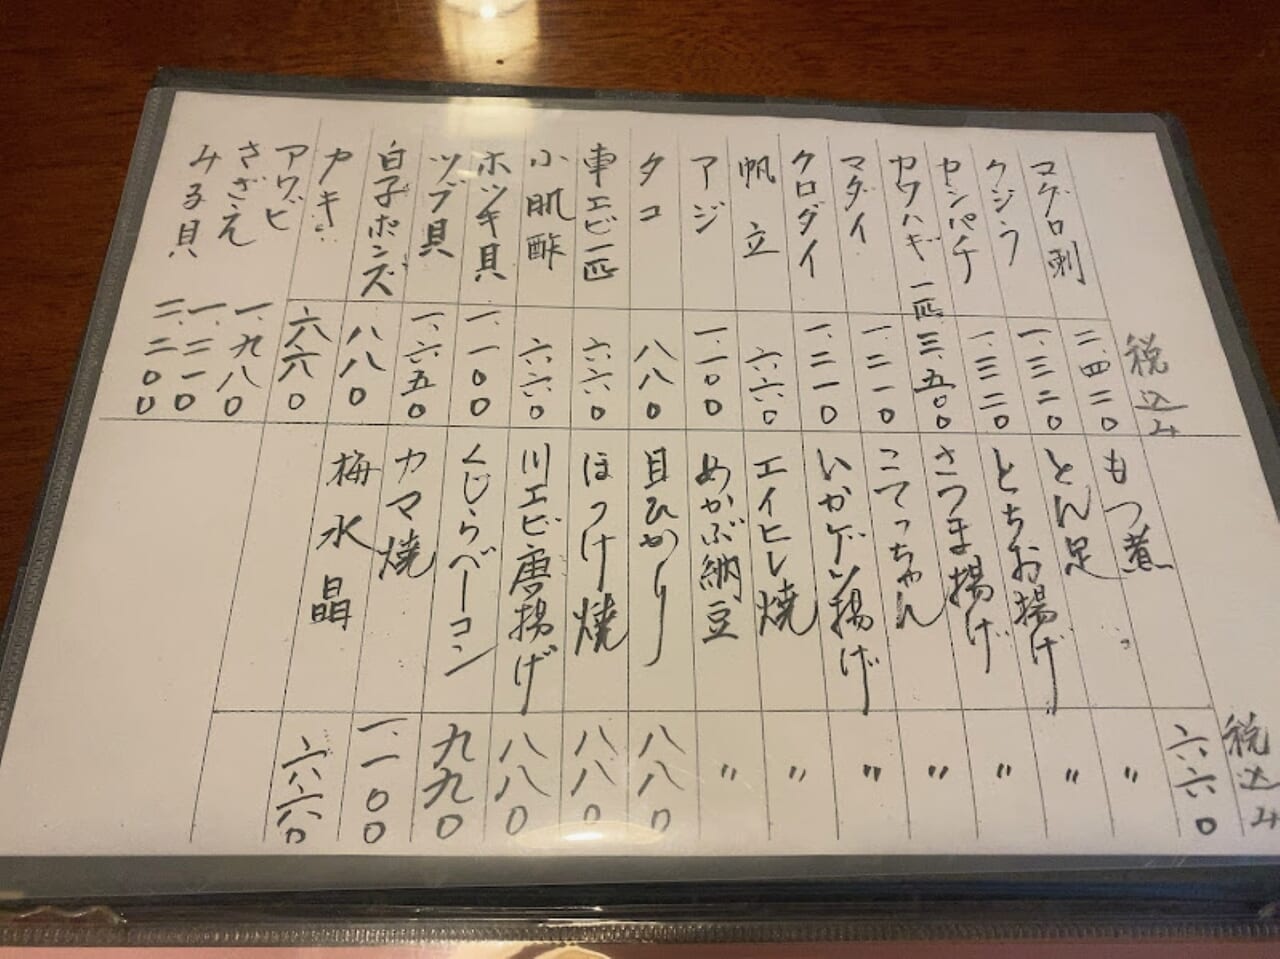 税込み
マグロ刺 二、四二〇
クジラ 一、三二〇
カンパチ 一、三二〇
カワハギ一匹 三、五〇〇
マダイ 一、二一〇
クロダイ 一、二一〇
帆立 六六〇
アジ 一、一〇〇
タコ 八八〇
車エビ一匹 六六〇
小肌酢 六六〇
ホッキ貝 一、一〇〇
ツブ貝 一、六五〇
白子ポンズ 八八〇
カキ 六六〇
アワビ 一、九八〇
さざえ 一、二一〇
みる貝 二、二〇〇
税込み
もつ煮 六六〇
とん足 〃
とちお揚げ 〃
さつま揚げ 〃
こてっちゃん 〃
いかゲソ揚げ 〃
エイヒレ焼 〃
めかぶ納豆 〃
八八〇
ほっけ焼 八八〇
川エビ唐揚げ 八八〇
くじらベーコン 九九〇
カマ焼 一、一〇〇
梅水晶 六六〇